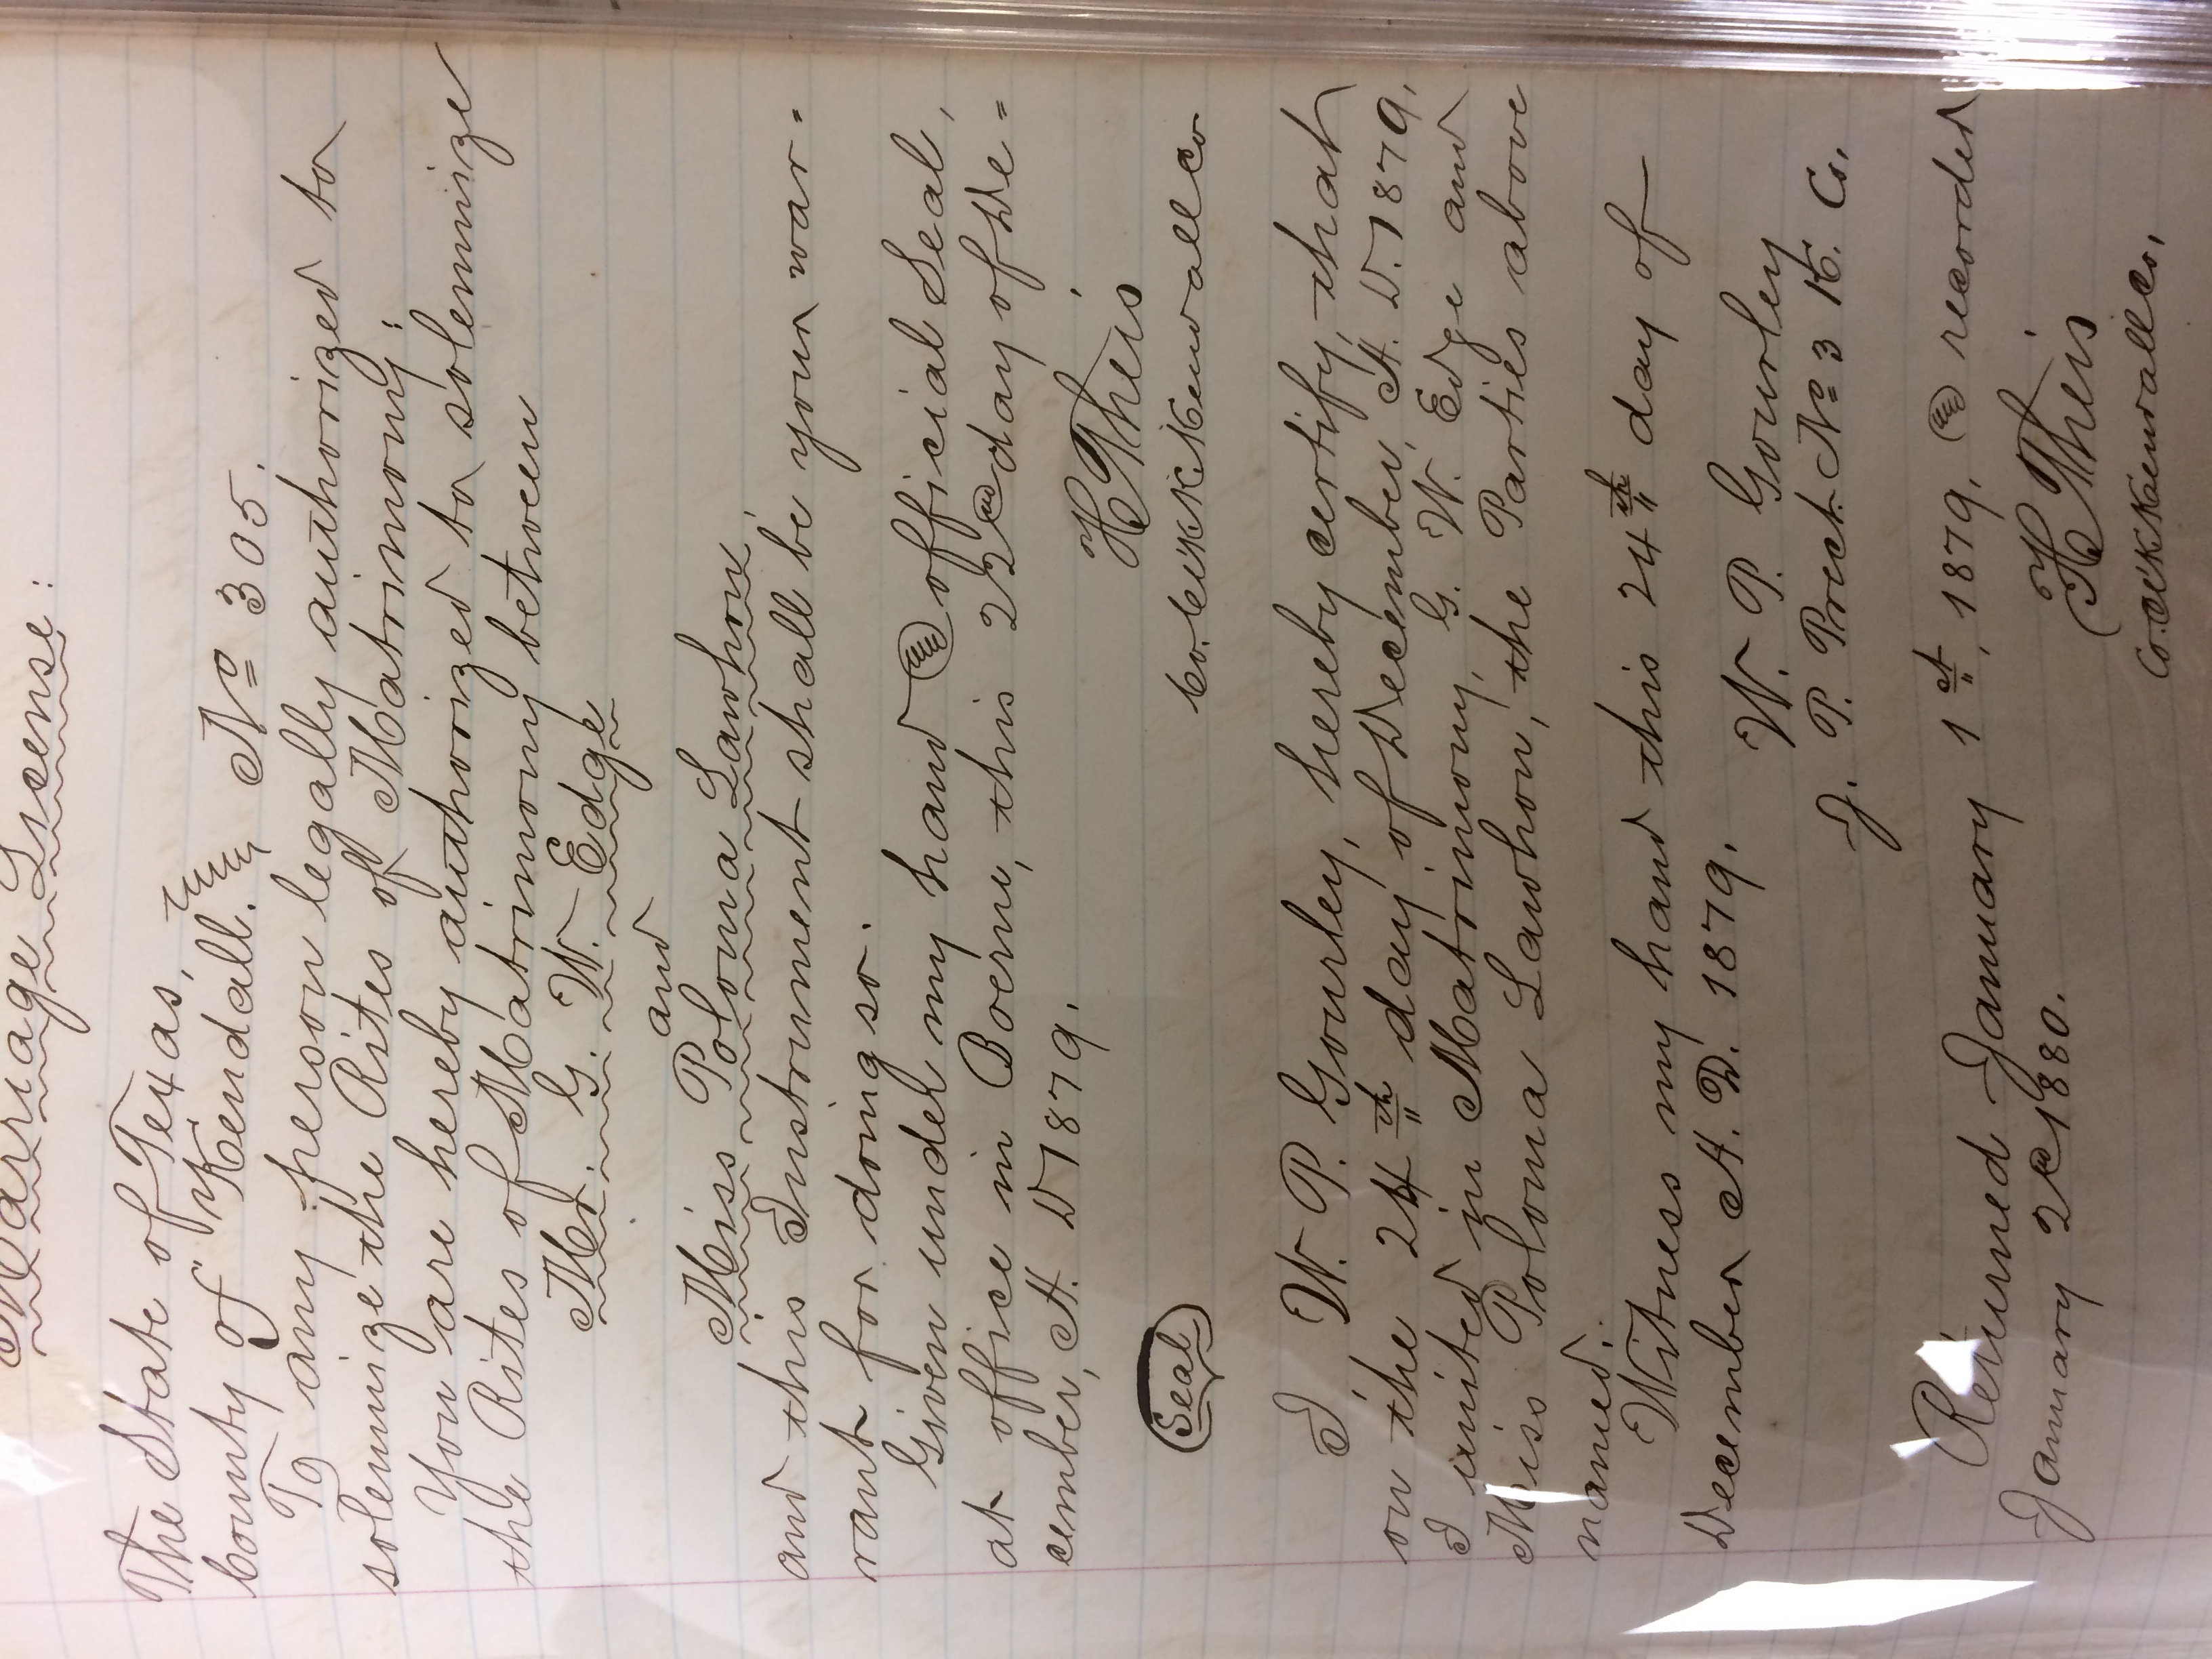 Marriage License:
The State of Texas,
County of Kendall. No 305.
To any person legally authorized to
solemnize the Rites of Matrimony:
You are hereby authorized to solemnize
the Rites of Matrimony between
Mr. G. W. Edge
and
Miss Poloma Lawhon
and this Instrument shall be your war=
rant for doing so.
Given under my hand and official Seal,
at office in Boerne, this 22nd day of De=
cember, A. D 1879.
H Theis
Co. Clerk Kendall Co
Seal
I W. P. Gourley, hereby certify that
on the 24th day of December, A. D. 1879,
I united in Matrimony, G. W. Edge and
Miss Poloma Lawhon, the Parties above
named.
Witness my hand this 24th day of
December A. D. 1879.
W. P. Gourley
J. P. Prect. No 3 K. Co.
Returned January 1st, 1879, and recorded
January 2nd 1880.
H Theis
Co. Clk Kendall Co,